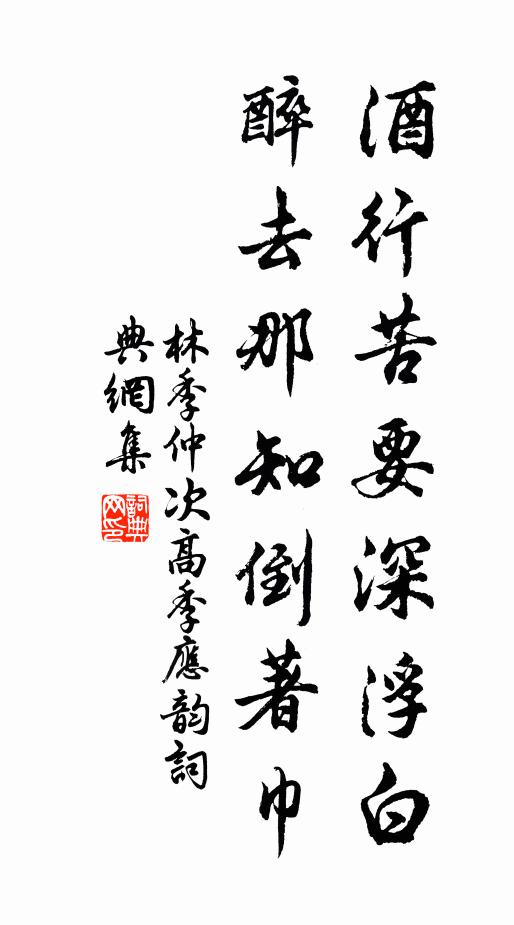 酒行苦要深浮白
醉去那知倒著巾
林季仲次高季應韵詞
典網集
詞典网印